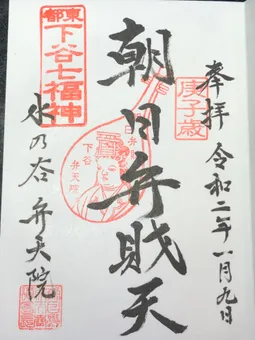 奉拝 令和二年一月九日
庚子歳
朝日弁財天
日弁
下谷
弁天院
東都
下谷七福神
水の谷 弁天院